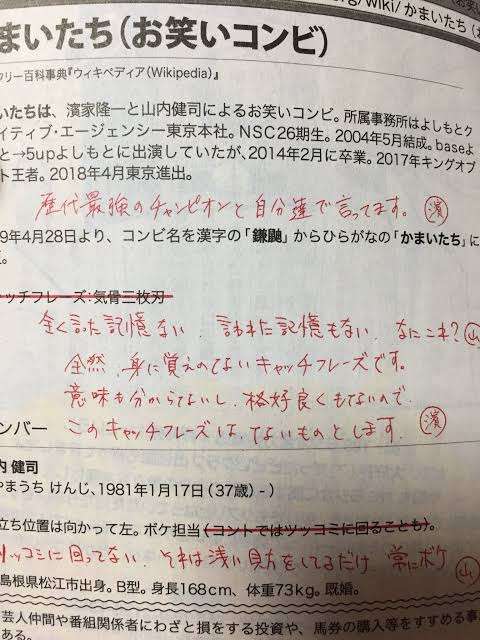 org/wiki/かまいたち
まいたち(お笑いコンビ)
フリー百科事典『ウィキペディア(Wikipedia)』
いたちは、濱家隆一と山内健司によるお笑いコンビ。所属事務所はよしもとク
イティブ・エージェンシー東京本社。NSC26期生。2004年5月結成。baseよ
と→5upよしもとに出演していたが、2014年2月に卒業。2017年キングオブ
ト王者。2018年4月東京進出。
歴代最強のチャンピオンと自分達で言ってます。 濱
9年4月28日より、コンビ名を漢字の「鎌鼬」からひらがなの「かまいたち」に
ッチフレーズ:気骨三枚刃
全く言った記憶ない 言われた記憶もない なにこれ? 山
全然、身に覚えのてないキャッチフレーズです。
意味も分からてないし、格好良くもてないので、
ンバー
このキャッチフレーズは、てないものとします。 濱
内 健司
やまうち けんじ、1981年1月17日(37歳) - )
立ち位置は向かって左。ボケ担当(コントではツッコミに回ることも)。
ツッコミに回ってない それは浅い見方をしてるだけ 常にボケ 山
島根県松江市出身。B型。身長168cm、体重73kg。既婚。
芸人仲間や番組関係者にわざと損をする投資や、馬券の購入等をすすめる事